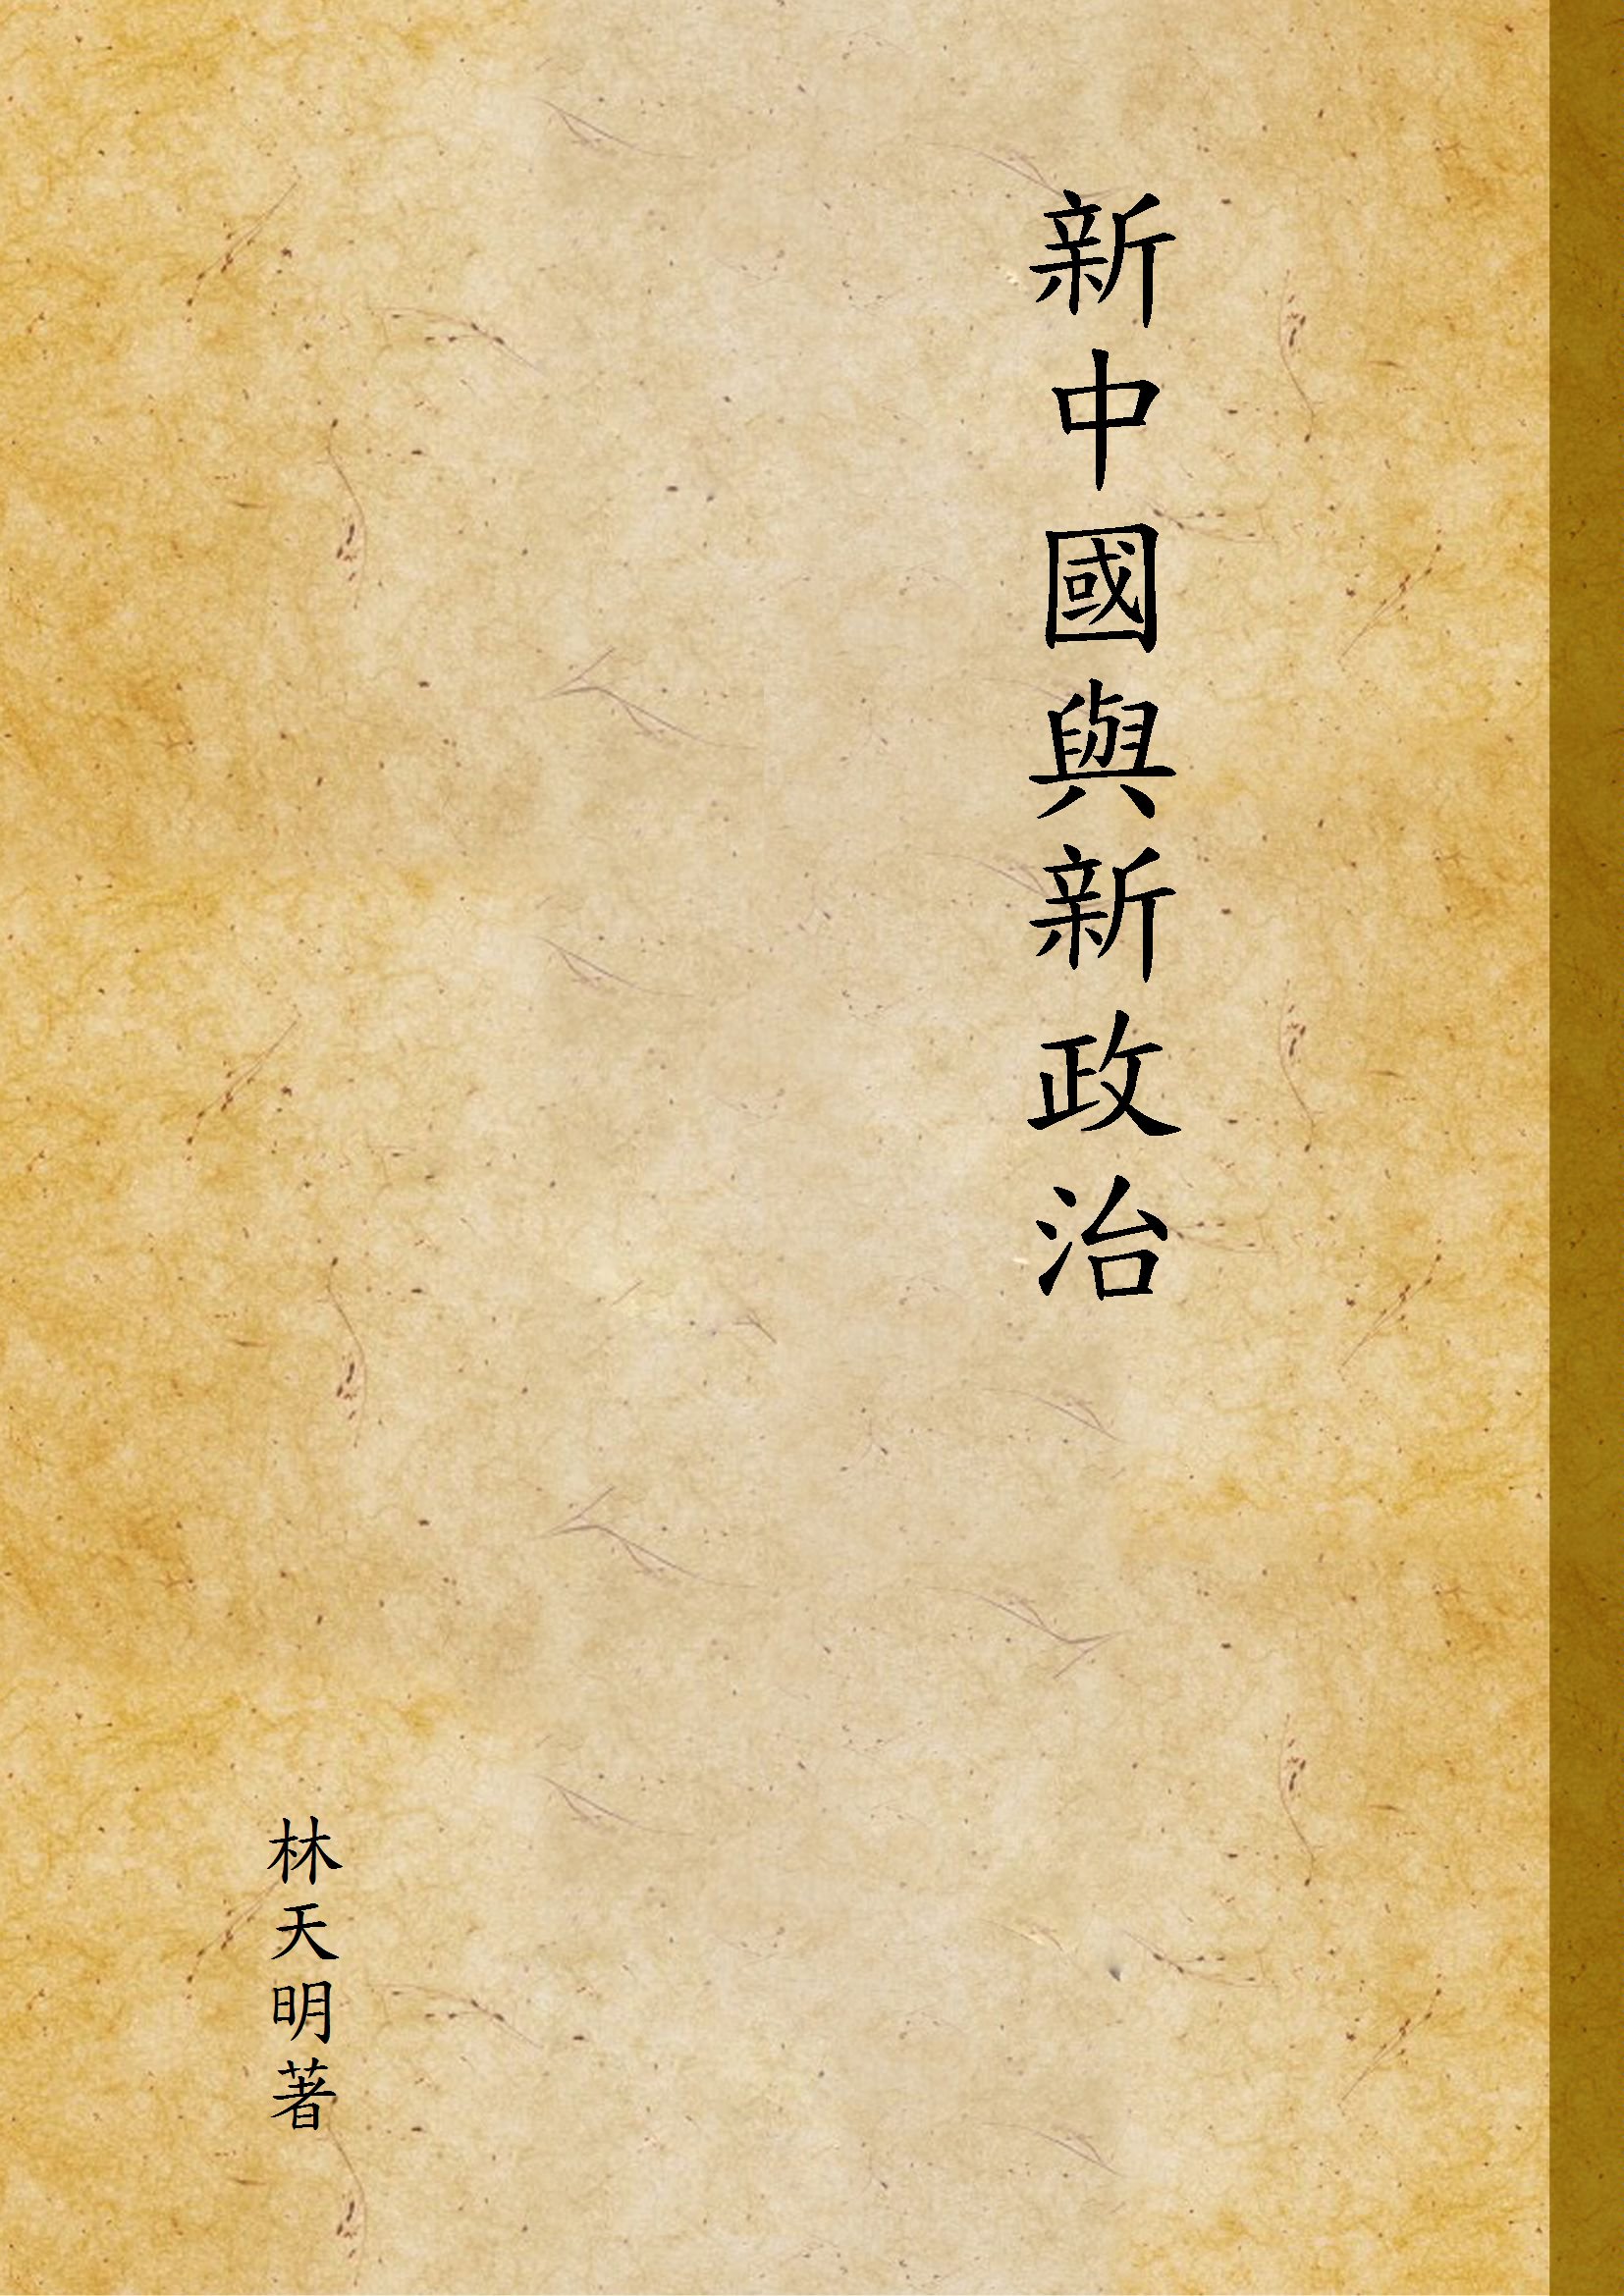 新中國與新政治
林天明著